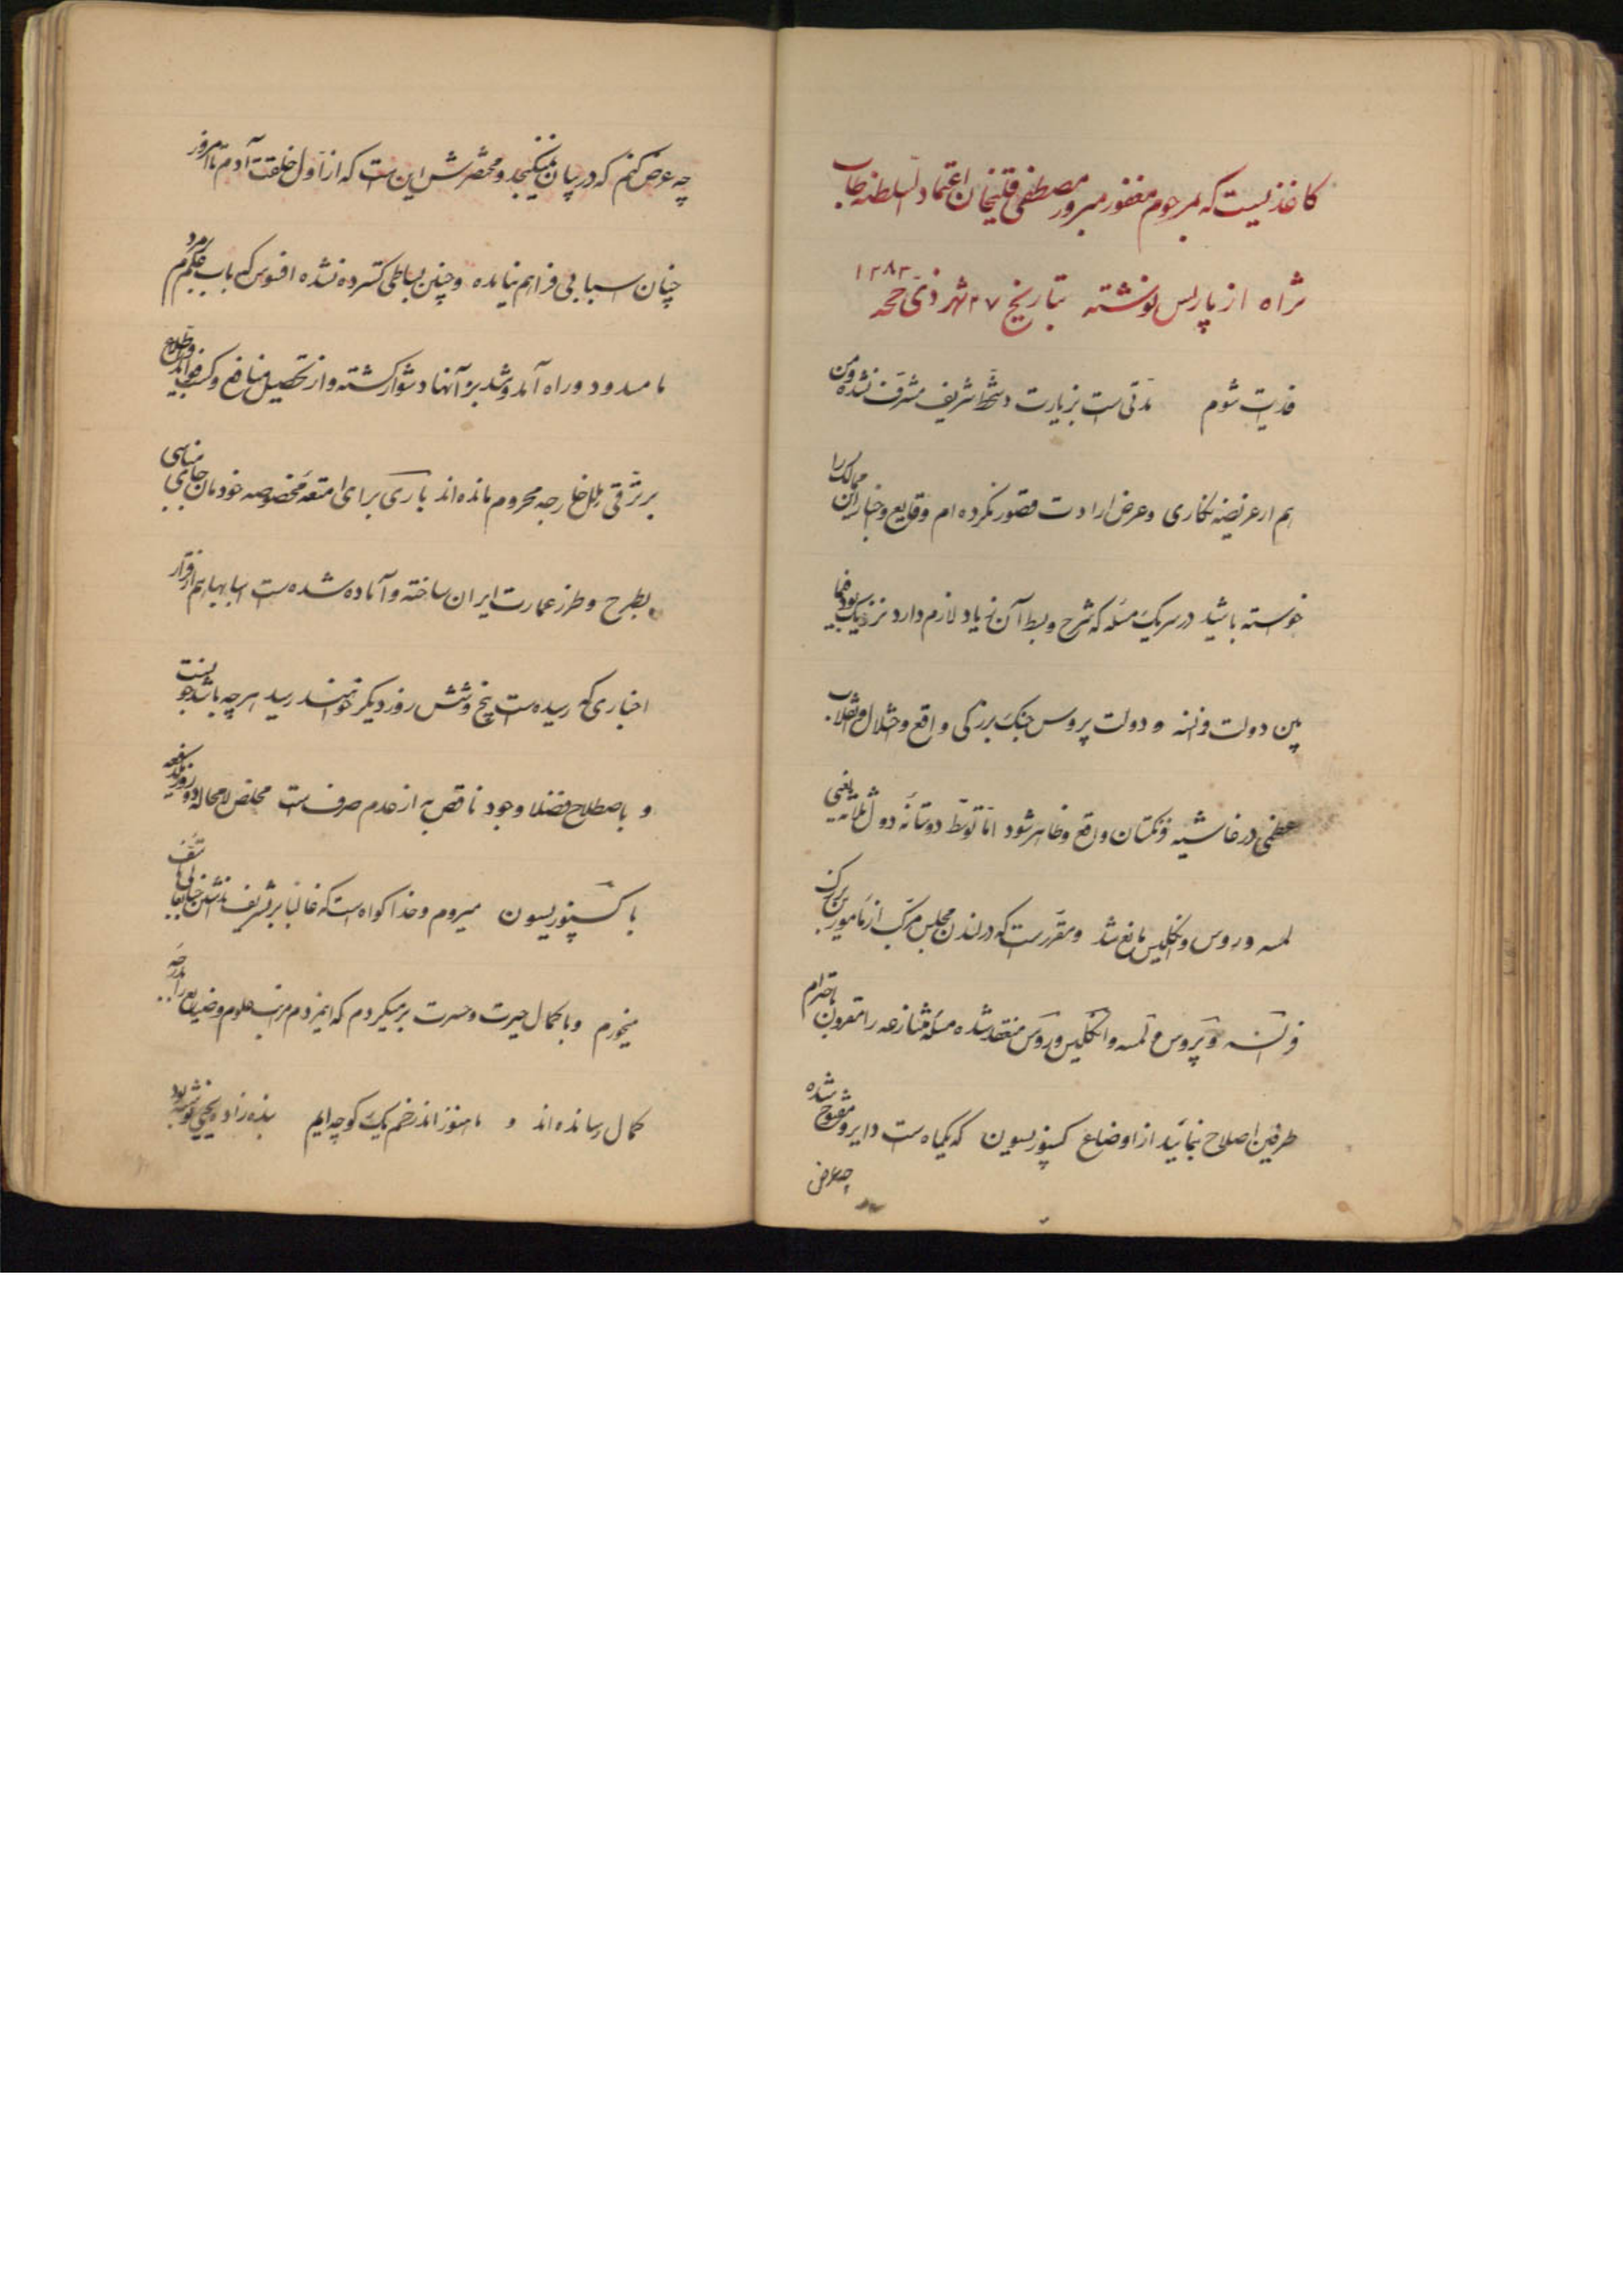 کاغذیست که مرحوم مغفور مبرور مصطفی قلیخان اعتماد السلطنه طاب
ثراه از پاریس نوشته بتاریخ ۲۷ شهر ذی حجه ۱۲۸۳
فدیت شوم مدتی است بزیارت دستخط شریف مشرف نشده و من
هم از عریضه نگاری و عرض ارادت قصور نکرده ام وقایع و اخبار این ممالک را
خواسته باشید در سر یک مسئله که شرح و بسط آن زیاد لازم دارد نزدیک بود فیما
بین دولت فرانسه و دولت پروس جنگ بزرگی واقع و اختلال و انقلاب
عظمی در فرنگستان واقع و ظاهر شود اما توسط دوستانه دول ثلاثه یعنی
نمسه و روس و انگلیس مانع شد و مقرر است که در لندن مجلس مرکب از مامورین بزرگ
فرانسه و پروس و نمسه و انگلیس و روس منعقد شده مسئله متنازعه را مقرون باحترام
طرفین اصلاح نمایند از اوضاع کسپوزیسیون که یکماه است دایر و مفتوح شده
چه عرض
چه عرض کنم که در بیان نمیگنجد و مختصرش این است که از اول خلقت آدم تا امروز
چنان اسبابی فراهم نیامده و چنین بساطی گسترده نشده افسوس که باب مردم
ما مسدود و راه آمد و شد بر آنها دشوار گشته و از تحصیل منافع و کسب فواید و اطلاع
بر ترقی ملل خارجه محروم مانده اند باری برای امتعه مخصوصه خودمان جای مناسبی
بطرح و طرز عمارت ایران ساخته و آماده شده است اسبابها هم از قرار
اخباری که رسیده است پنج و شش روز دیگر خواهند رسید هر چه باشد خوبست
و باصطلاح فضلا وجود ناقص به از عدم صرف است مخلص لامحاله دو روز یکدفعه
با کسپوزیسیون میروم و خدا گواه است که غالبا بر تشریف نداشتن جنابعالی تاسف
میخورم و با کمال حیرت و حسرت برمیگردم که این مردم مراتب علوم و صنایع را بچه درجه
کمال رسانده اند و ما هنوز اندر خم یک کوچه ایم بنده زاده یحیی نوشته بود